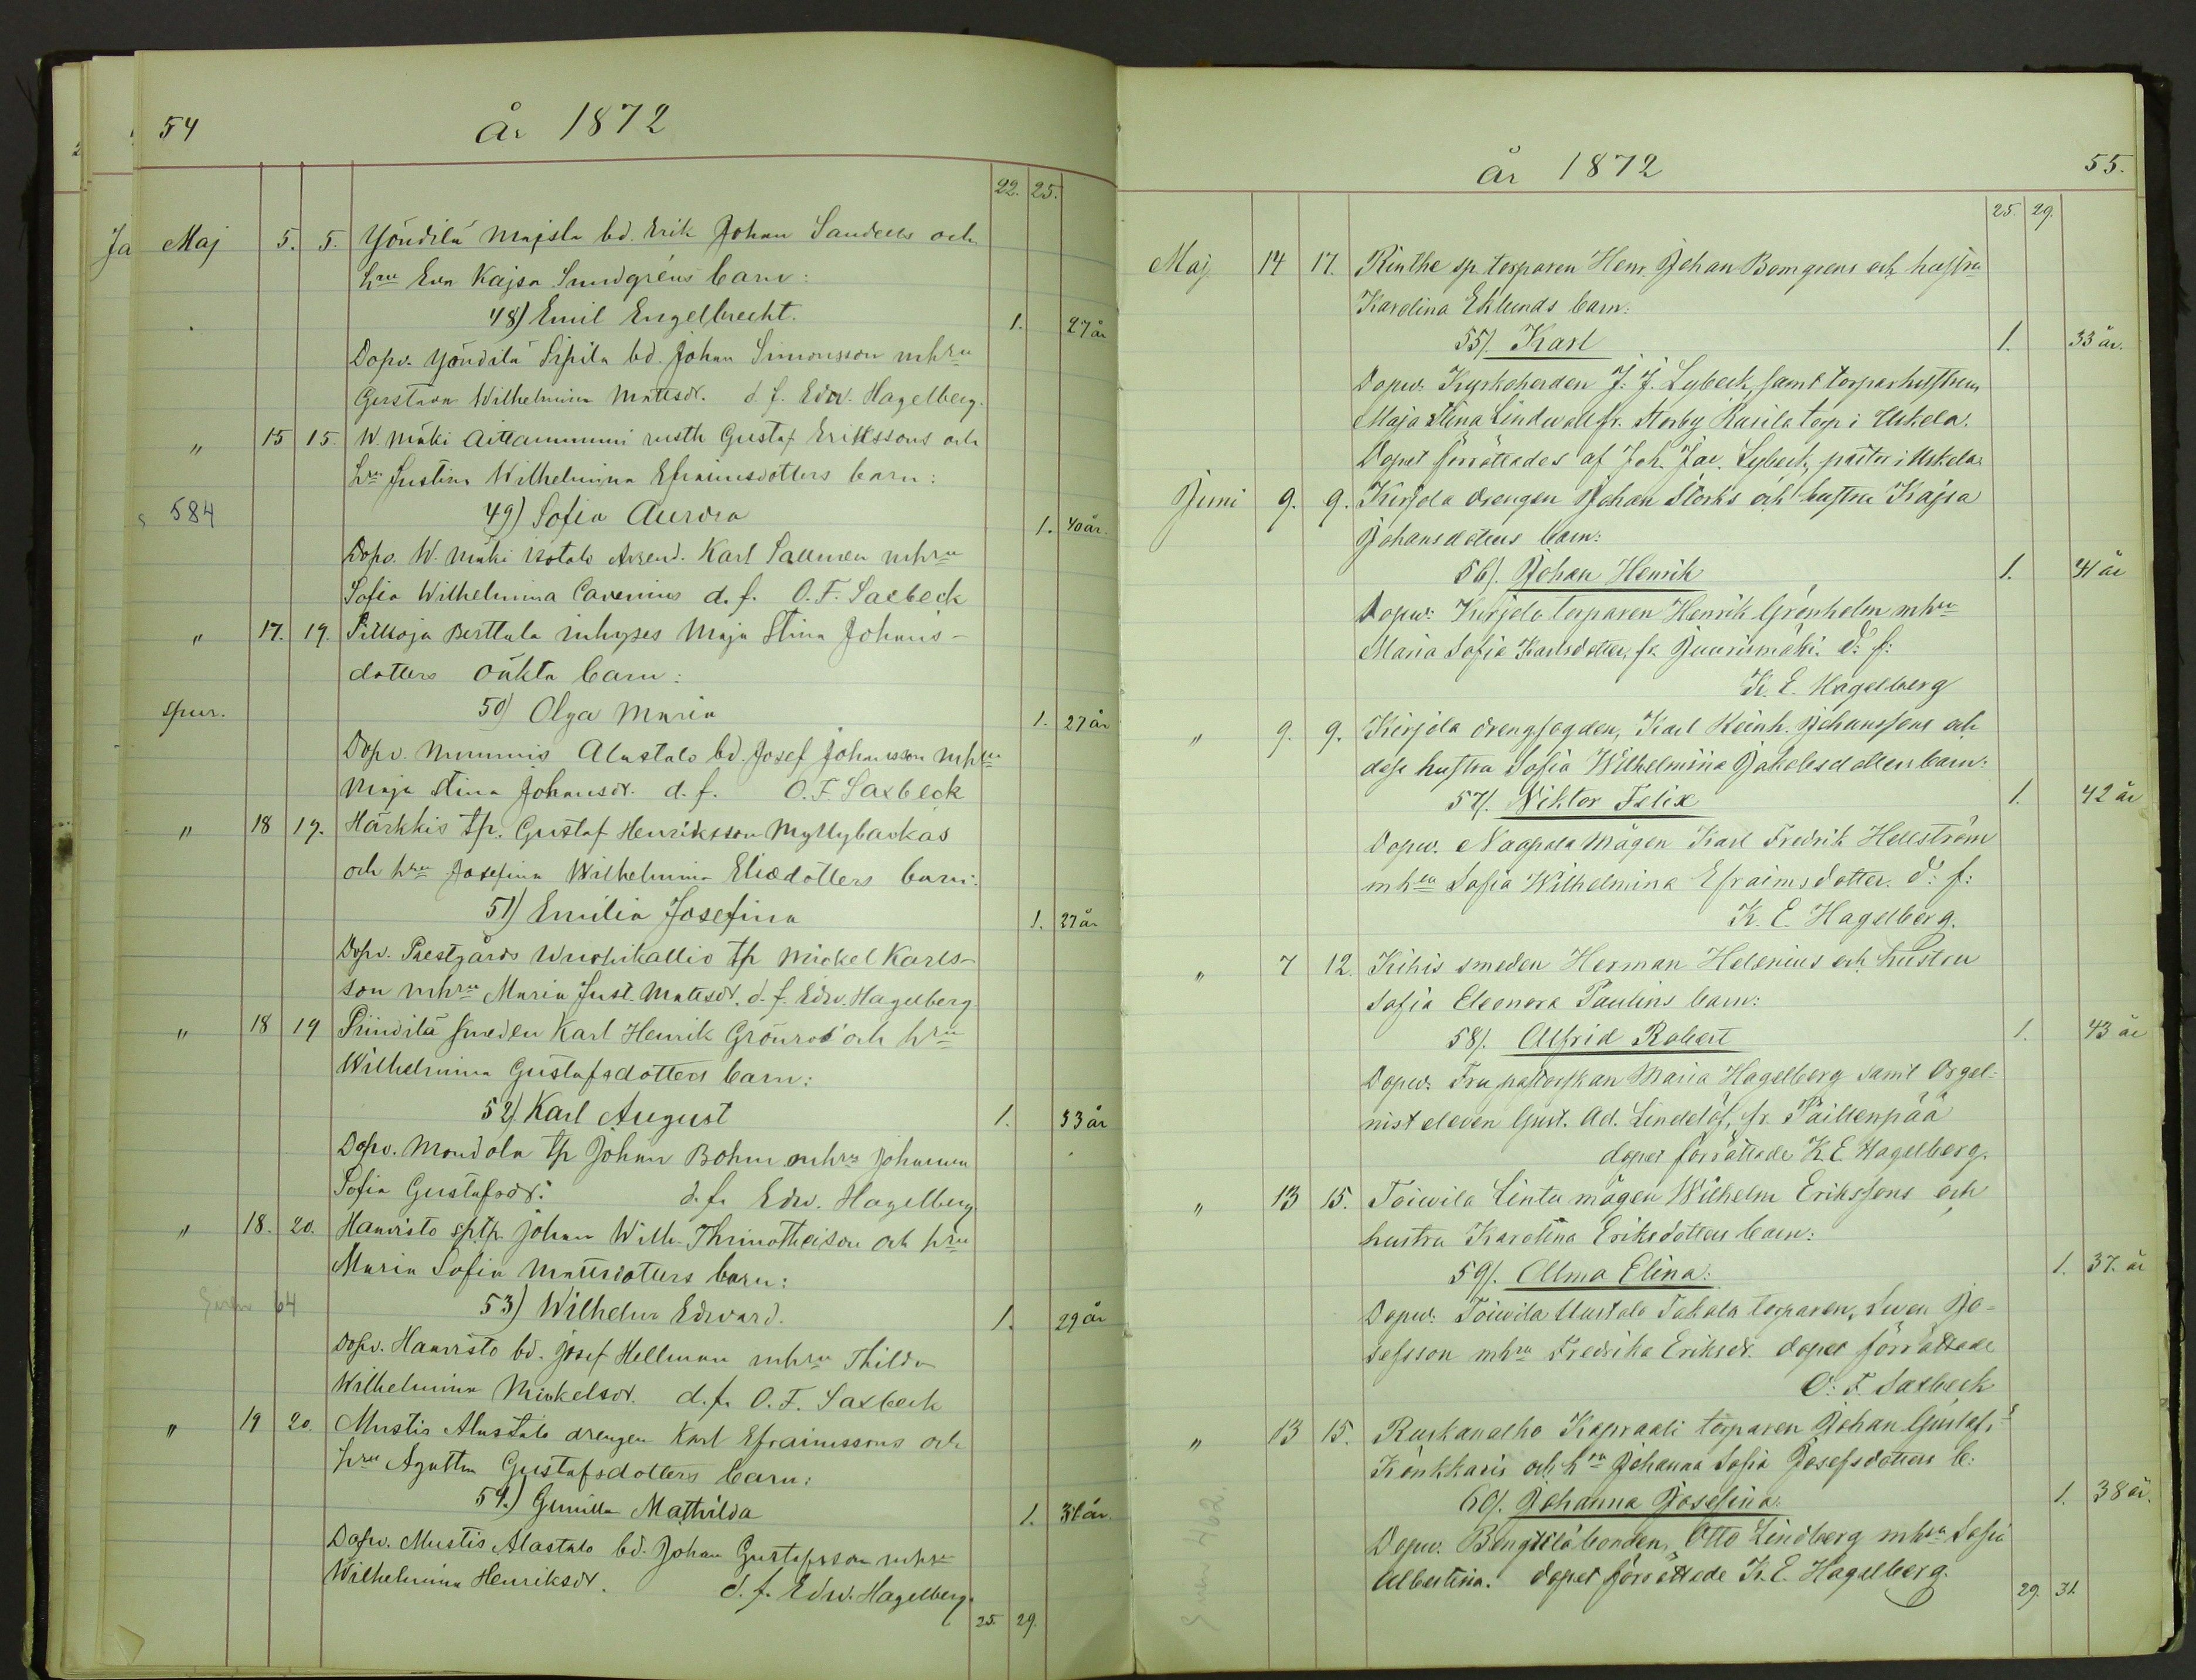 54
År 1872
22. 25.
Maj 5. 5. Yöndilä Majsla bd. Erik Johan Sandells och
hru Eva Kajsa Sundgréns barn:
48) Emil Engelbrecht. 1. 27 år
Dopv. Yöndilä Sipila bd. Johan Simonsson mhru
Gustava Wilhelmina Mattsdr. d. f. Edw. Hagelberg.
" 15 15. W. Mäki Aittanummi rusth Gustaf Erikssons och
hru Justina Wilhelmina Efraimsdotters barn:
584 49) Sofia Aurora 1. 40 år.
Dopv. W. Mäki Isotalo Arrend. Karl Sallmen mhru
Sofia Wilhelmina Cavenius d. f. O. F. Saxbeck
" 17. 19. Pitkoja Berttala inhyses Maja Stina Johans-
dotters oäkta barn:
spur. 50) Olga Maria 1. 27 år
Dopv. Nummis Alastalo bd. Josef Johansson mhru
Maja Stina Johansdr. d. f. O. F. Saxbeck
" 18 19. Härkkis tp. Gustaf Henriksson Myllybackas
och hru Josefina Wilhelmina Eliedotters barn:
51) Emilia Josefina 1. 27 år
Dopv. Prestgårds Wuohikallio tp Mickel Karls-
son mhru Maria Just. Mattsdr. d. f. Edw. Hagelberg
" 18 19 Priindilä smeden Karl Henrik Grönroos och hru
Wilhelmina Gustafsdotters barn:
52) Karl August 1. 33 år
Dopv. Mondola tp Johan Bohm mhru Johanna
Sofia Gustafsdr. d. f. Edw. Hagelberg
" 18. 20. Hanvisto sp.tp. Johan Wilh. Thimotheison och hru
Maria Sofia Mattsdotters barn:
64 53) Wilhelm Edvard. 1. 29 år
Dopv. Hanvisto bd. Josef Hellman mhru Thilda
Wilhelmina Mickelsdr. d. f. O. F. Saxbeck
" 19 20. Mustis Alastalo drengen Karl Efraimssons och
hru Agatha Gustafsdotters barn:
54.) Gunilla Mathilda 1. 31 år.
Dopv. Mustis Alastalo bd. Johan Gustafsson mhru
Wilhelmina Henriksdr. d. f. Edw. Hagelberg.
25. 29.
År 1872
55.
25. 29.
Maj 14 17. Rinthe sp. torparen Henr. Johan Bomgrens och hustru
Karolina Eklunds barn:
55). Karl 1. 33 år.
Dopw: Kyrkoherden J. J. Lybeck, samt torparhustrun
Maja Stina Lindwall fr. Storby Rasila torp i Uskela.
Dopet förrättades af Joh. Jac. Lybeck, pastor i Uskela.
Juni 9. 9. Kirjola drengen Johan Storks och hustru Kajsa
Johansdotters barn:
56). Johan Henrik 1. 41 år
Dopw: Kirjola torparen Henrik Grönholm mhru
Maria Sofia Karlsdotter, fr. Juurismäki. d: f:
K. E. Hagelberg
" 9. 9. Kirjola drengfogden, Karl Reinh. Johanssons och
dess hustru Sofia Wilhelmina Jakobsdotters barn:
57). Wiktor Felix 1. 42 år
Dopw. Naapala mågen Karl Fredrik Hellström
mhru Sofia Wilhelmina Efraimsdotter. d: f:
K. E. Hagelberg.
" 7 12. Kihis smeden Herman Helenius och hustru
Sofia Eleonora Paulins barn:
58). Alfrid Robert 1. 43 år
Dopw: Fru pastorskan Maria Hagelberg samt Orgel-
nist eleven Gust. Ad. Lindelöf, fr. Paillenpää
dopet förrättade K. E. Hagelberg.
" 13 15. Toiwila Lintu mågen Wilhelm Erikssons och
hustru Karolina Eriksdotters barn:
59). Alma Elina: 1. 37. år
Dopw: Toiwila Uustalo Takala torparen, Swen Jo-
sefsson mhru Fredrika Eriksdr. dopet förrättade
O: F. Saxbeck
" 13 15. Ruskanalho Kapraali torparen Johan Gustafss
Könkkaris och hru Johanna Sofia Josefsdotters b:
60). Johanna Josefina. 1. 38 år.
Dopw. Bengtilä bonden, Otto Lindberg mhru Sofia
Albertina. dopet förrättade K. E. Hagelberg.
29. 31.